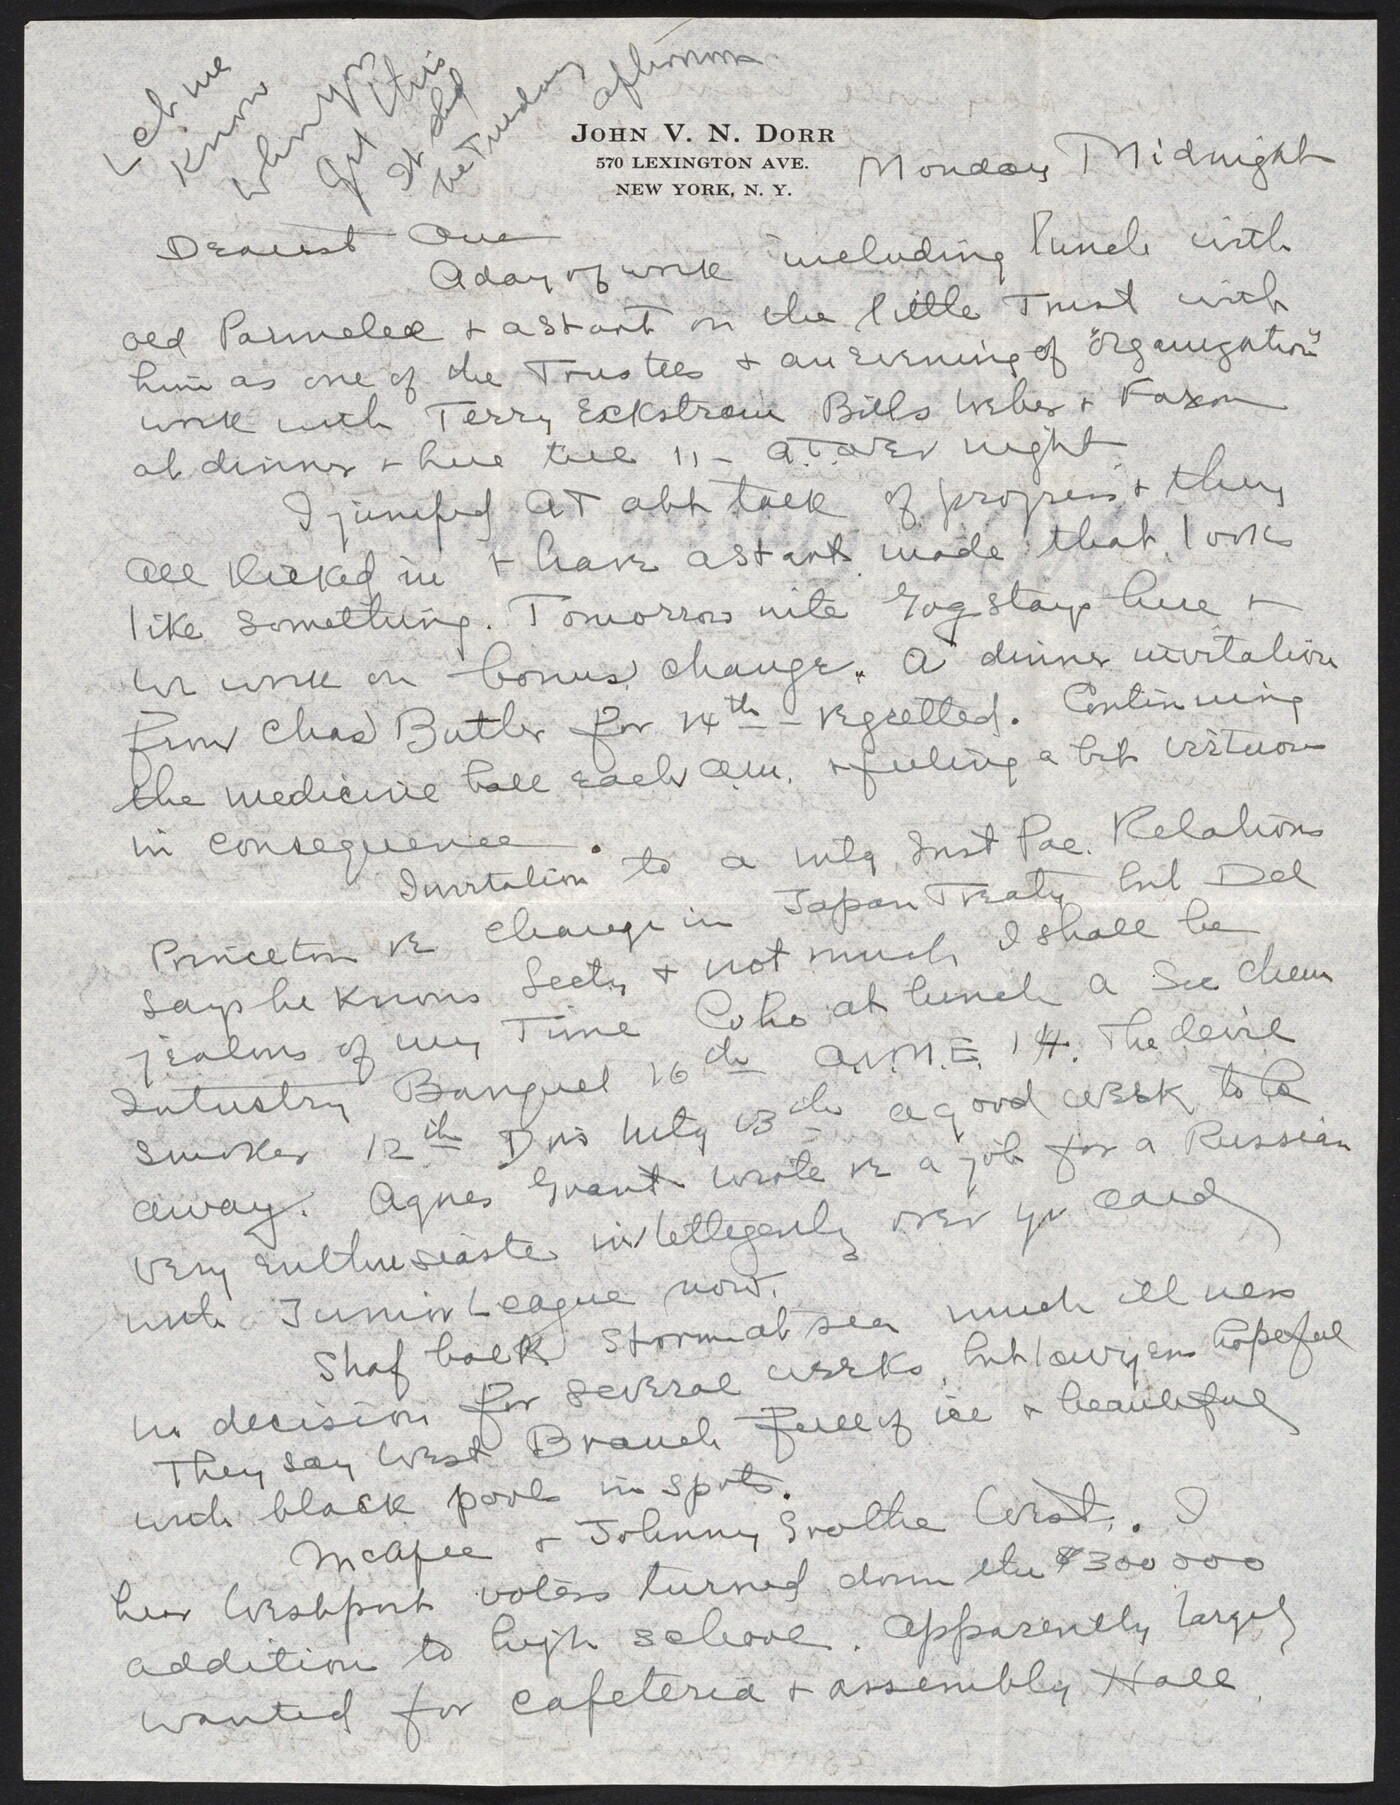 Let me
know
when you
get this
It shd
be Tuesday
afternoon
JOHN V. N. DORR
570 LEXINGTON AVE.
NEW YORK, N. Y.
Monday Midnight
Dearest One
A day of work including lunch with
old Parmelee + a start on the little Trust with
him as one of the Trustees + an evening of "organization"
work with Terry Eckstrom Bills Weber + Faxon
at dinner + here till 11 - night
I jumped at abt talk of progress + they
all kicked in + have a start made that looks
like something. Tomorrow nite stays here +
we work on bonus change. A dinner invitation
from Chas Butler for 14th - regretted. Continuing
the medicine ball each a.m. + feeling a bit virtuous
in consequence.
Invitation to a mtg Inst Pac. Relations
Princeton re change in Japan Treaty but Del
says he knows Secty + not much I shall be
jealous of my Time at lunch a Soc Chem
Industry Banquet 16th A.I.M.E. 14. The devil
smoker 12th Drs Mtg 13th a good week to be
away. Agnes Grant wrote re a job for a Russian
very enthusiastic intellegently over yr card
with Junior League now.
Shaf back storm at sea much illness
no decision for several weeks, but lawyers hopeful
They say West Branch full of ice + beautiful
with black pools in spots.
McAfee + Johnny Grothe West. I
hear Westport voters turned down the $300000
addition to high school. Apparently largely
wanted for cafeteria + assembly Hall.